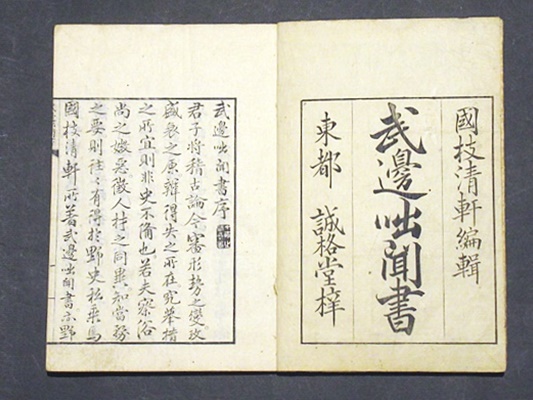 國枝清軒編輯
武邊咄聞書
東都 誠格堂梓
武邊咄聞書序
君子將稽古論今審形勢之變攻
盛衰之原辯得失之所在究舉措
之所宜則非史不備也若夫察俗
尚之媺惡徵人材之同異知當務
之要則往々有得於野史松乘焉
國枝清軒所著武邊咄聞書亦野